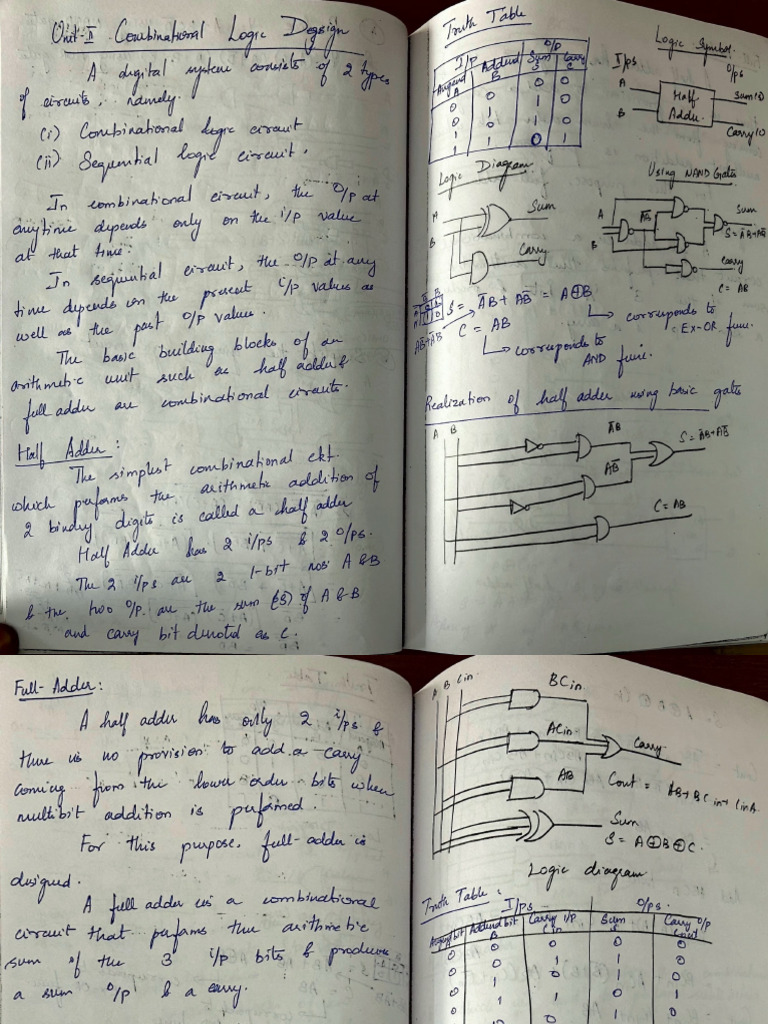 Unit-II Combinational Logic Degsign
A digital system consists of 2 types
of circuits, namely.
(i) Combinational logic circuit
(ii) Sequential logic circuit.
In combinational circuit, the O/p at
anytime depends only on the i/p value
at that time.
In sequential circuit, the O/p at any
time depends on the present i/p values as
well as the past O/p values.
The basic building blocks of an
arithmetic unit such as half adder &
full adder are combinational circuits.
Half Adder:
The simplest combinational ckt.
which performs the arithmetic addition of
2 binary digits is called a half adder
Half Adder has 2 i/ps & 2 O/ps.
The 2 i/ps are 2 1-bit nos A & B
& the two O/p are the sum (S) of A & B
and carry bit denoted as C.
Truth Table
I/p O/p
Augend Addend Sum Carry
A B S C
0 0 0 0
0 1 1 0
1 0 1 0
1 1 0 1
Logic Symbol.
I/ps O/ps
A Half Sum(S)
B Adder. Carry(C)
Logic Diagram
A Sum
B
Carry
Using NAND Gates
A AB Sum
B S = A̅B + AB̅
Carry
C = AB
S = A̅B + AB̅ = A⊕B
A̅B+AB̅ C = AB
↳ corresponds to
Ex-OR func.
↳ corresponds to
AND func.
Realization of half adder using basic gates
A B
A̅B S = A̅B+AB̅
AB̅
C = AB
Full-Adder:
A half adder has only 2 i/ps &
there is no provision to add a carry
coming from the lower order bits when
multibit addition is performed.
For this purpose, full-adder is
designed.
A full adder is a combinational
circuit that performs the arithmetic
sum of the 3 i/p bits & produces
a sum O/p & a carry.
A B Cin
BCin
ACin Carry
AB Cout = AB+BCin+CinA
Sum
S = A⊕B⊕C.
Logic diagram
Truth Table:
I/ps O/ps.
Augend bit Addend bit Carry i/p Sum Carry O/p
A B Cin S Cout
0 0 0 0 0
0 0 1 1 0
0 1 0 1 0
0 1 1 0 1